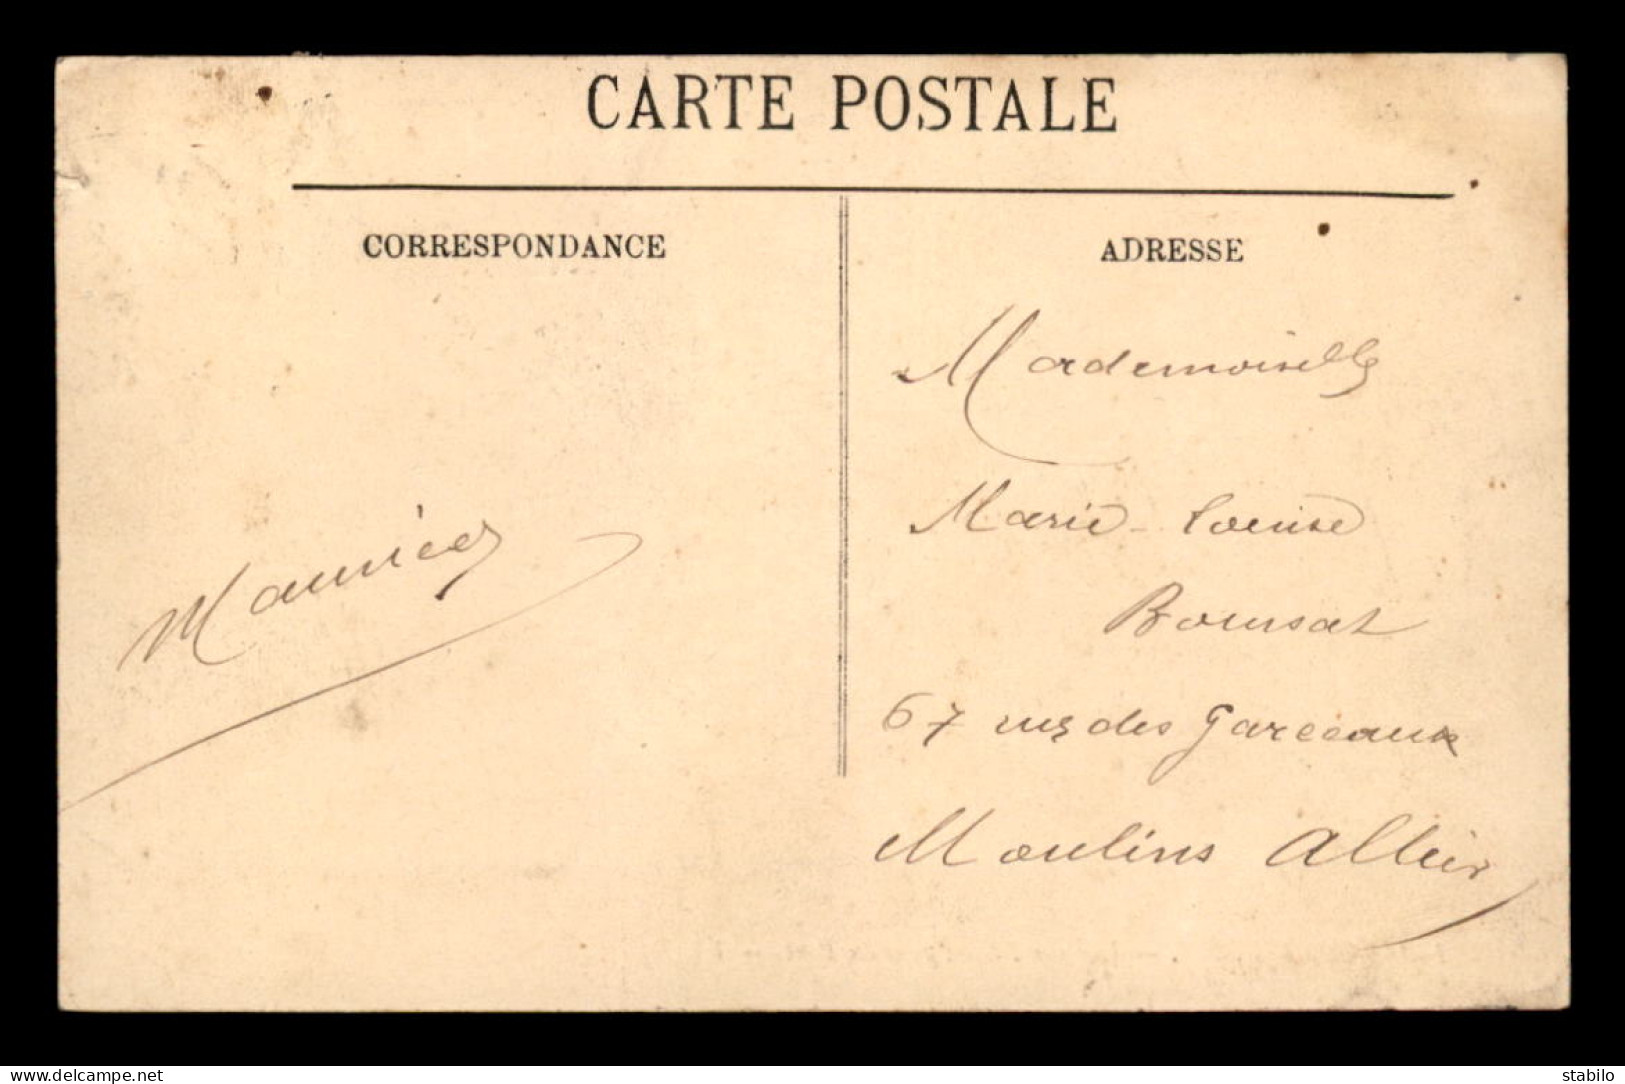 CARTE POSTALE
CORRESPONDANCE
ADRESSE
Maurice
Mademoiselle
Marie-Louise
Boursat
67 rue des Garceaux
Moulins Allier
www.delcampe.net
stabilo